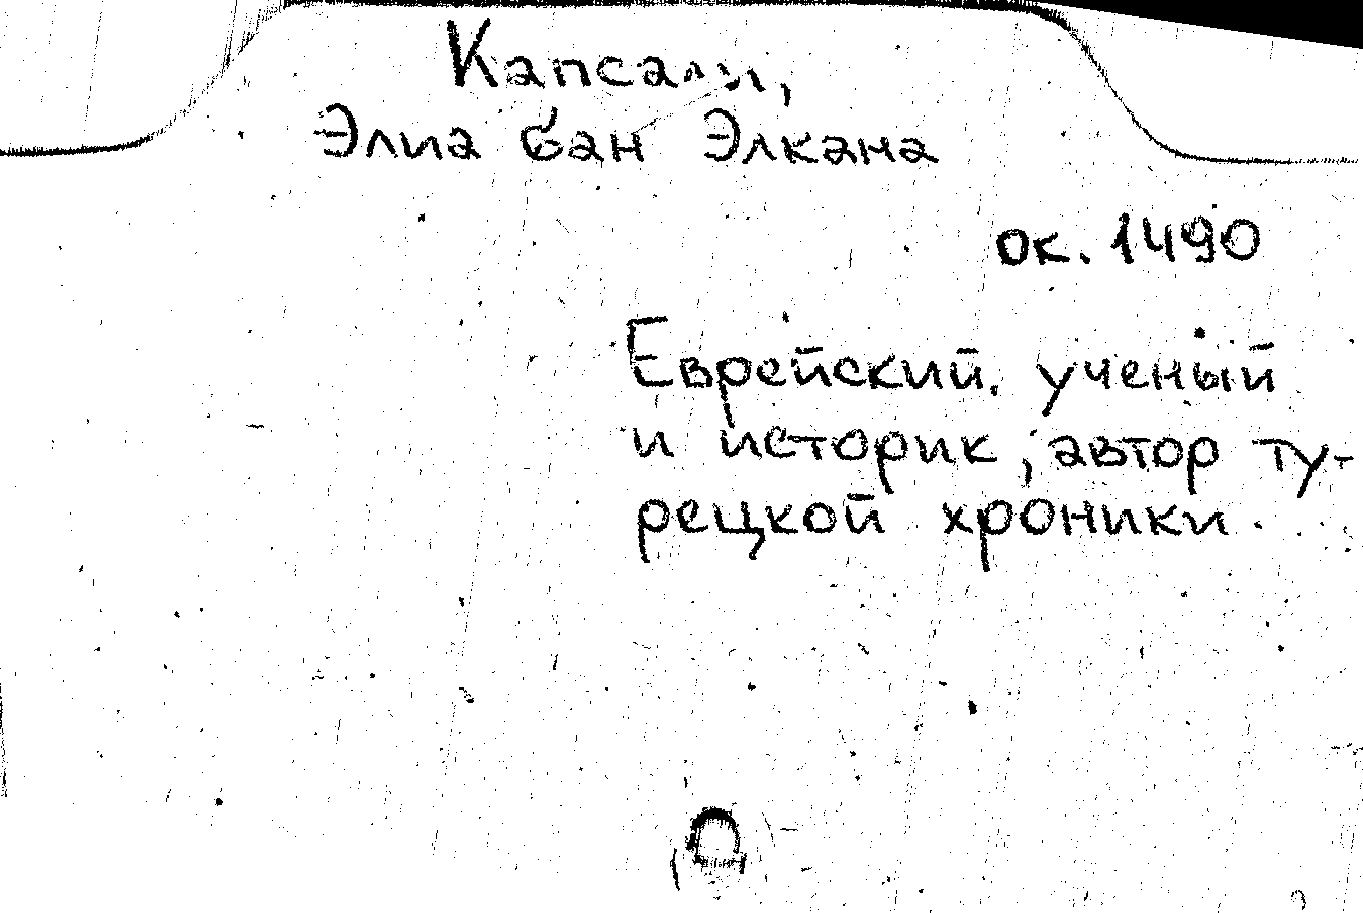 Капсали,
Элиа бан Элкана
ок. 1490
Еврейский. ученый
и историк, автор ту-
рецкой хроники.